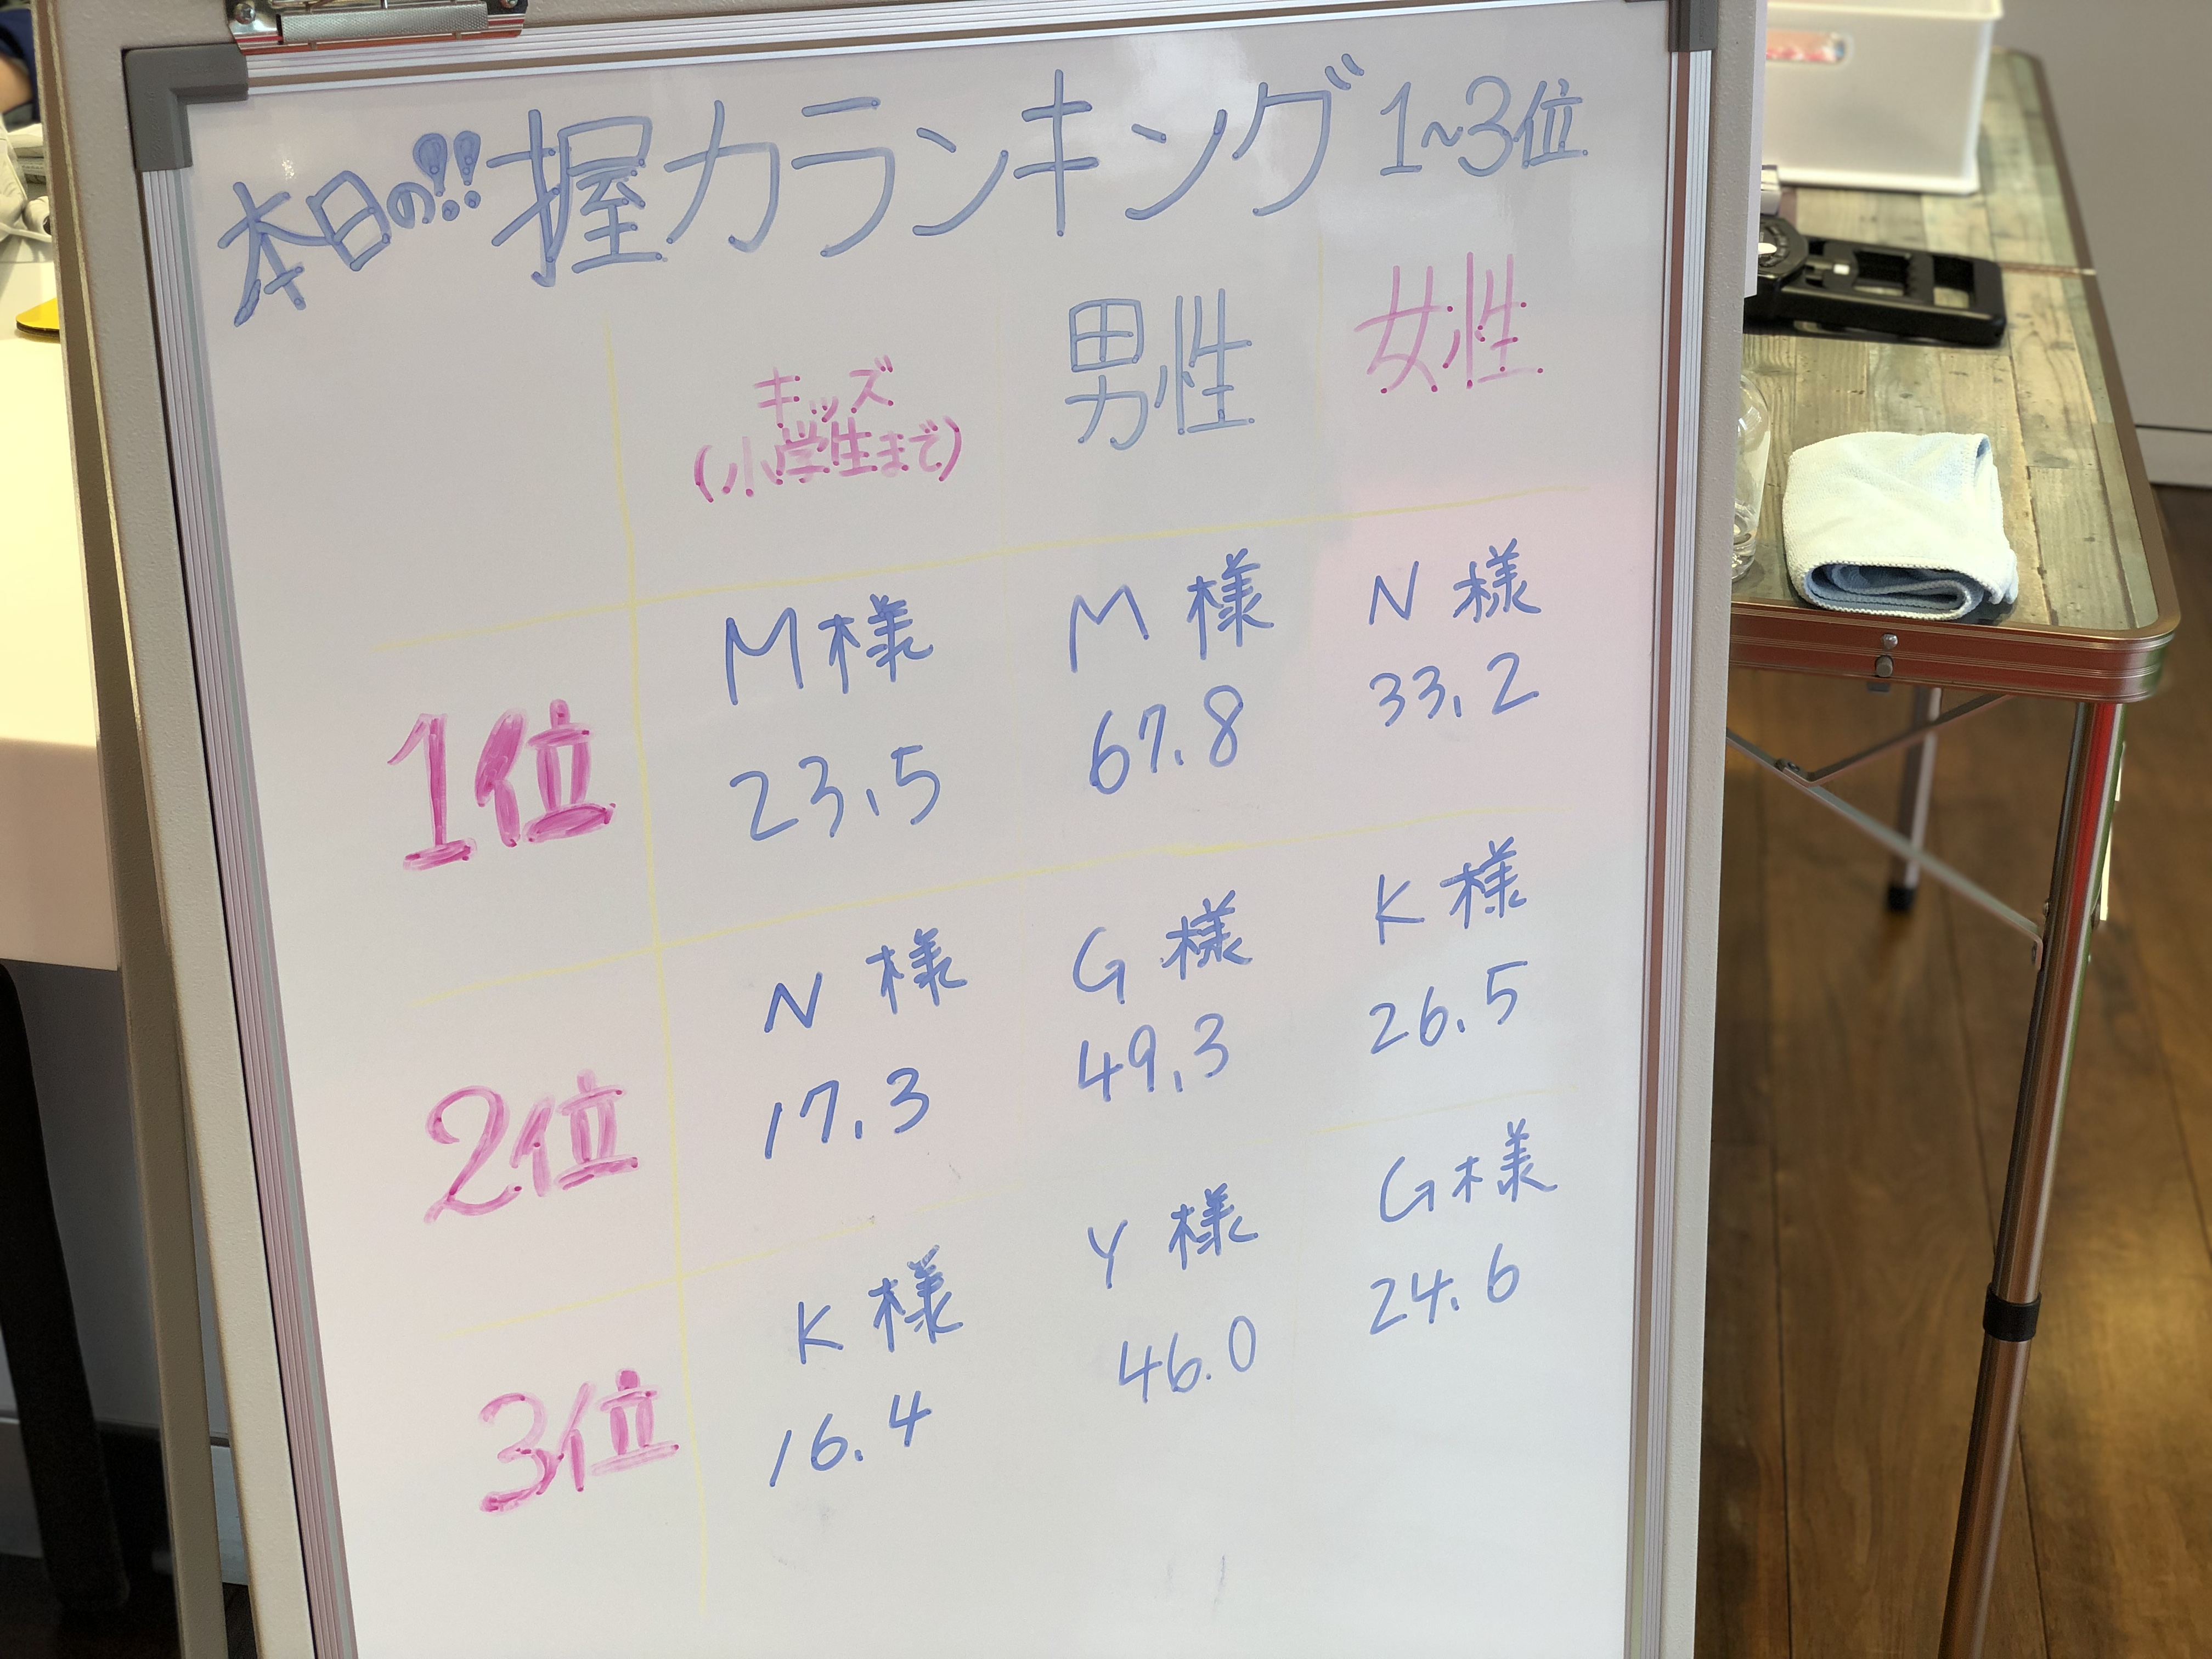 本日の!! 握力ランキング 1~3位
キッズ
(小学生まで)
男性
女性
1位
M様
23.5
M様
67.8
N様
33.2
2位
N様
17.3
G様
49.3
K様
26.5
3位
K様
16.4
Y様
46.0
G様
24.6